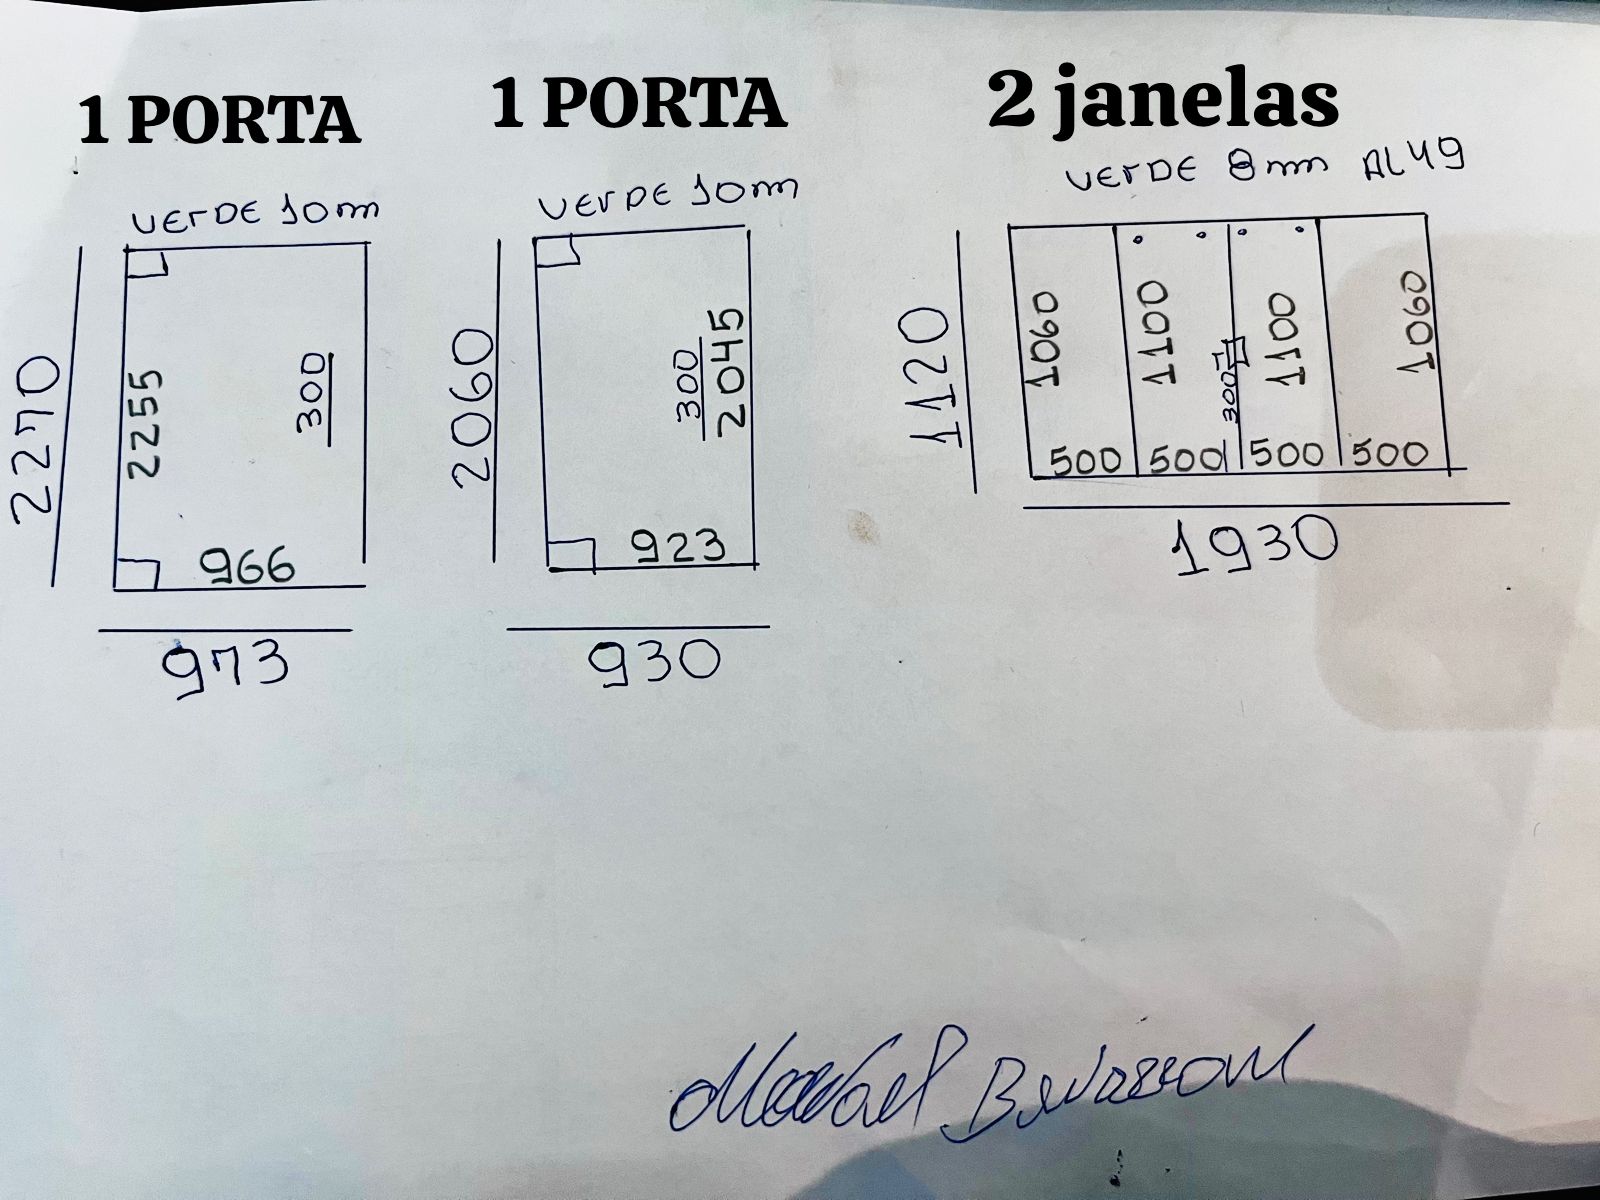 1 PORTA
VErDE 10mm
2270
2255
300
966
973
1 PORTA
VErDE 10mm
2060
300
2045
923
930
2 janelas
VErDE 8mm AL49
1120
1060
1100
300
1100
1060
500
500
500
500
1930